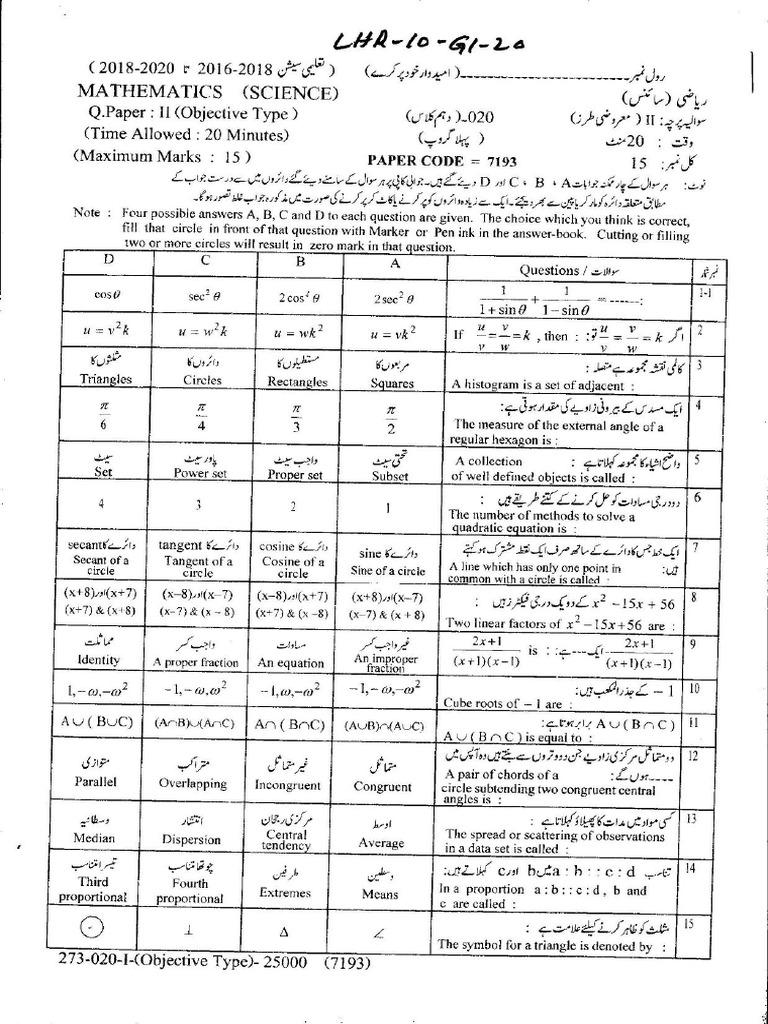 LHR-10-G1-20
رول نمبر ---------- (امیدوار خود پر کرے) (تعلیمی سیشن 2016-2018 تا 2018-2020)
ریاضی (سائنس) MATHEMATICS (SCIENCE)
سوالیہ پرچہ: II (معروضی طرز) 020۔(دہم کلاس) Q.Paper : II (Objective Type)
وقت : 20 منٹ (پہلا گروپ) (Time Allowed : 20 Minutes)
کل نمبر: 15 PAPER CODE = 7193 (Maximum Marks : 15)
نوٹ: ہر سوال کے چار ممکنہ جوابات A، B، C اور D دیئے گئے ہیں۔ جوابی کاپی پر ہر سوال کے سامنے دیئے گئے دائروں میں سے درست جواب کے
مطابق متعلقہ دائرہ کو مارکر یا پین سے بھر دیجئے۔ ایک سے زیادہ دائروں کو پر کرنے یا کاٹ کر پر کرنے کی صورت میں مذکورہ جواب غلط تصور ہوگا۔
Note : Four possible answers A, B, C and D to each question are given. The choice which you think is correct,
fill that circle in front of that question with Marker or Pen ink in the answer-book. Cutting or filling
two or more circles will result in zero mark in that question.
D C B A Questions / سوالات نمبر شمار
cosθ sec² θ 2cos² θ 2sec² θ 1/(1+sinθ) + 1/(1−sinθ) = ------: 1-1
u = v²k u = w²k u = wk² u = vk² If u/v = v/w = k , then : اگر u/v = v/w = k تو: 2
مثلثوں کا دائروں کا مستطیلوں کا مربعوں کا کالمی نقشہ مجموعہ ہے متصلہ : 3
Triangles Circles Rectangles Squares A histogram is a set of adjacent :
π/6 π/4 π/3 π/2 ایک مسدس کے بیرونی زاویے کی مقدار ہوتی ہے: 4
The measure of the external angle of a
regular hexagon is :
سیٹ پاور سیٹ واجب سیٹ تحتی سیٹ A collection واضح اشیاء کا مجموعہ کہلاتا ہے : 5
Set Power set Proper set Subset of well defined objects is called :
4 3 2 1 دو درجی مساوات کو حل کرنے کے کتنے طریقے ہیں: 6
The number of methods to solve a
quadratic equation is :
دائرے کا secant دائرے کا tangent دائرے کا cosine دائرے کا sine ایک خط جس کا دائرے کے ساتھ صرف ایک نقطہ مشترک ہو کہتے 7
ہیں:
Secant of a circle Tangent of a circle Cosine of a circle Sine of a circle A line which has only one point in
common with a circle is called :
(x+7)اور(x+8) (x−7)اور(x−8) (x+7)اور(x−8) (x−7)اور(x+8) x² −15x + 56 کے دو یک درجی فیکٹرز ہیں: 8
(x+7) & (x+8) (x-7) & (x - 8) (x+7) & (x -8) (x-7) & (x + 8) Two linear factors of x² −15x+56 are :
مماثلت واجب کسر مساوات غیر واجب کسر (2x+1)/((x+1)(x−1)) is : ایک ---ہے: (2x+1)/((x+1)(x−1)) 9
Identity A proper fraction An equation An improper fraction
1,−ω,−ω² −1,−ω,ω² −1,ω,−ω² −1,−ω,−ω² −1 کے جذر المکعب ہیں: 10
Cube roots of −1 are :
A∪(B∪C) (A∩B)∪(A∩C) A∩(B∩C) (A∪B)∩(A∪C) A∪(B∩C) برابر ہوتا ہے: 11
A∪(B∩C) is equal to :
متوازی متراکب غیر متماثل متماثل دو متماثل مرکزی زاویے جن دو وتروں سے بنتے ہیں وہ آپس میں 12
----ہوں گے:
Parallel Overlapping Incongruent Congruent A pair of chords of a
circle subtending two congruent central
angles is :
وسطانیہ انتشار مرکزی رجحان اوسط کسی مواد میں مدات کا پھیلاؤ کہلاتا ہے : 13
Median Dispersion Central tendency Average The spread or scattering of observations
in a data set is called :
تیسرا تناسب چوتھا تناسب طرفین وسطین تناسب a : b : : c : d میں b اور c کہلاتے ہیں: 14
Third proportional Fourth proportional Extremes Means In a proportion a : b : : c : d , b and
c are called :
⊙ ⊥ Δ ∠ مثلث کو ظاہر کرنے کیلئے علامت ہے : 15
The symbol for a triangle is denoted by :
273-020-I-(Objective Type)- 25000 (7193)